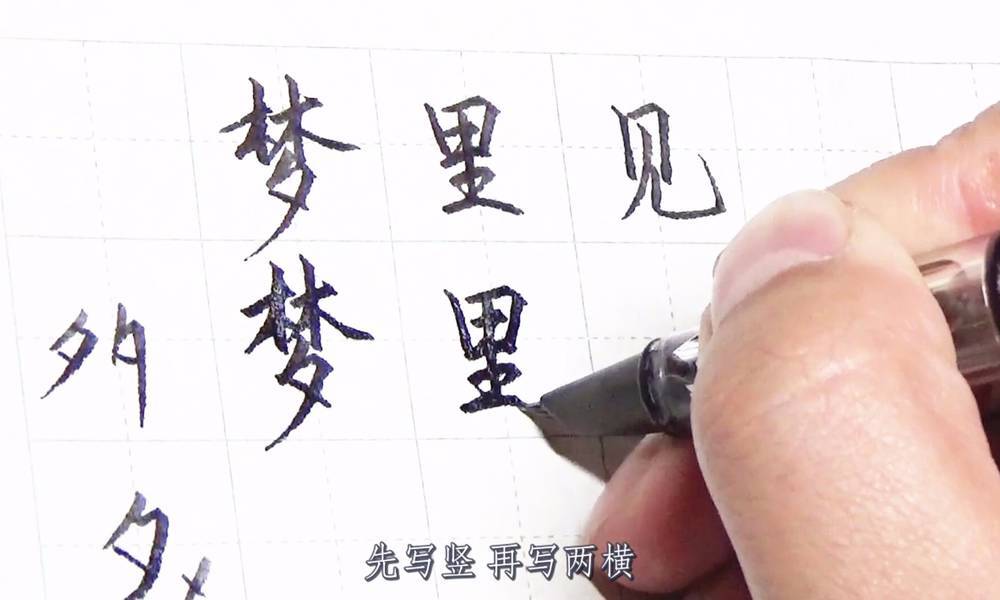 梦里见
梦里
夕
先写竖 再写两横